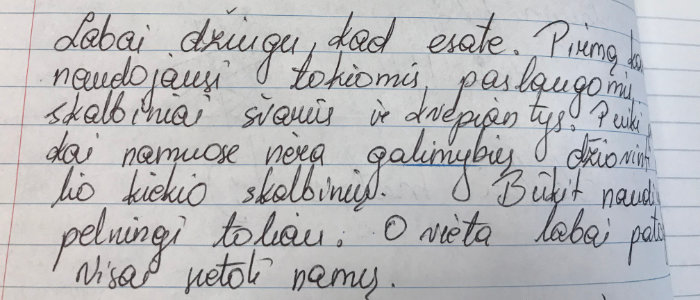 Labai džiugu, kad esate. Pirmą
naudojausi tokiomis paslaugomis,
skalbiniai švarūs ir kvepiantys. Puiki
kai namuose nėra galimybių džiovint
lio kiekio skalbinių. Būkit naudi
pelningi toliau. O vieta labai pato
Visai netoli namų.